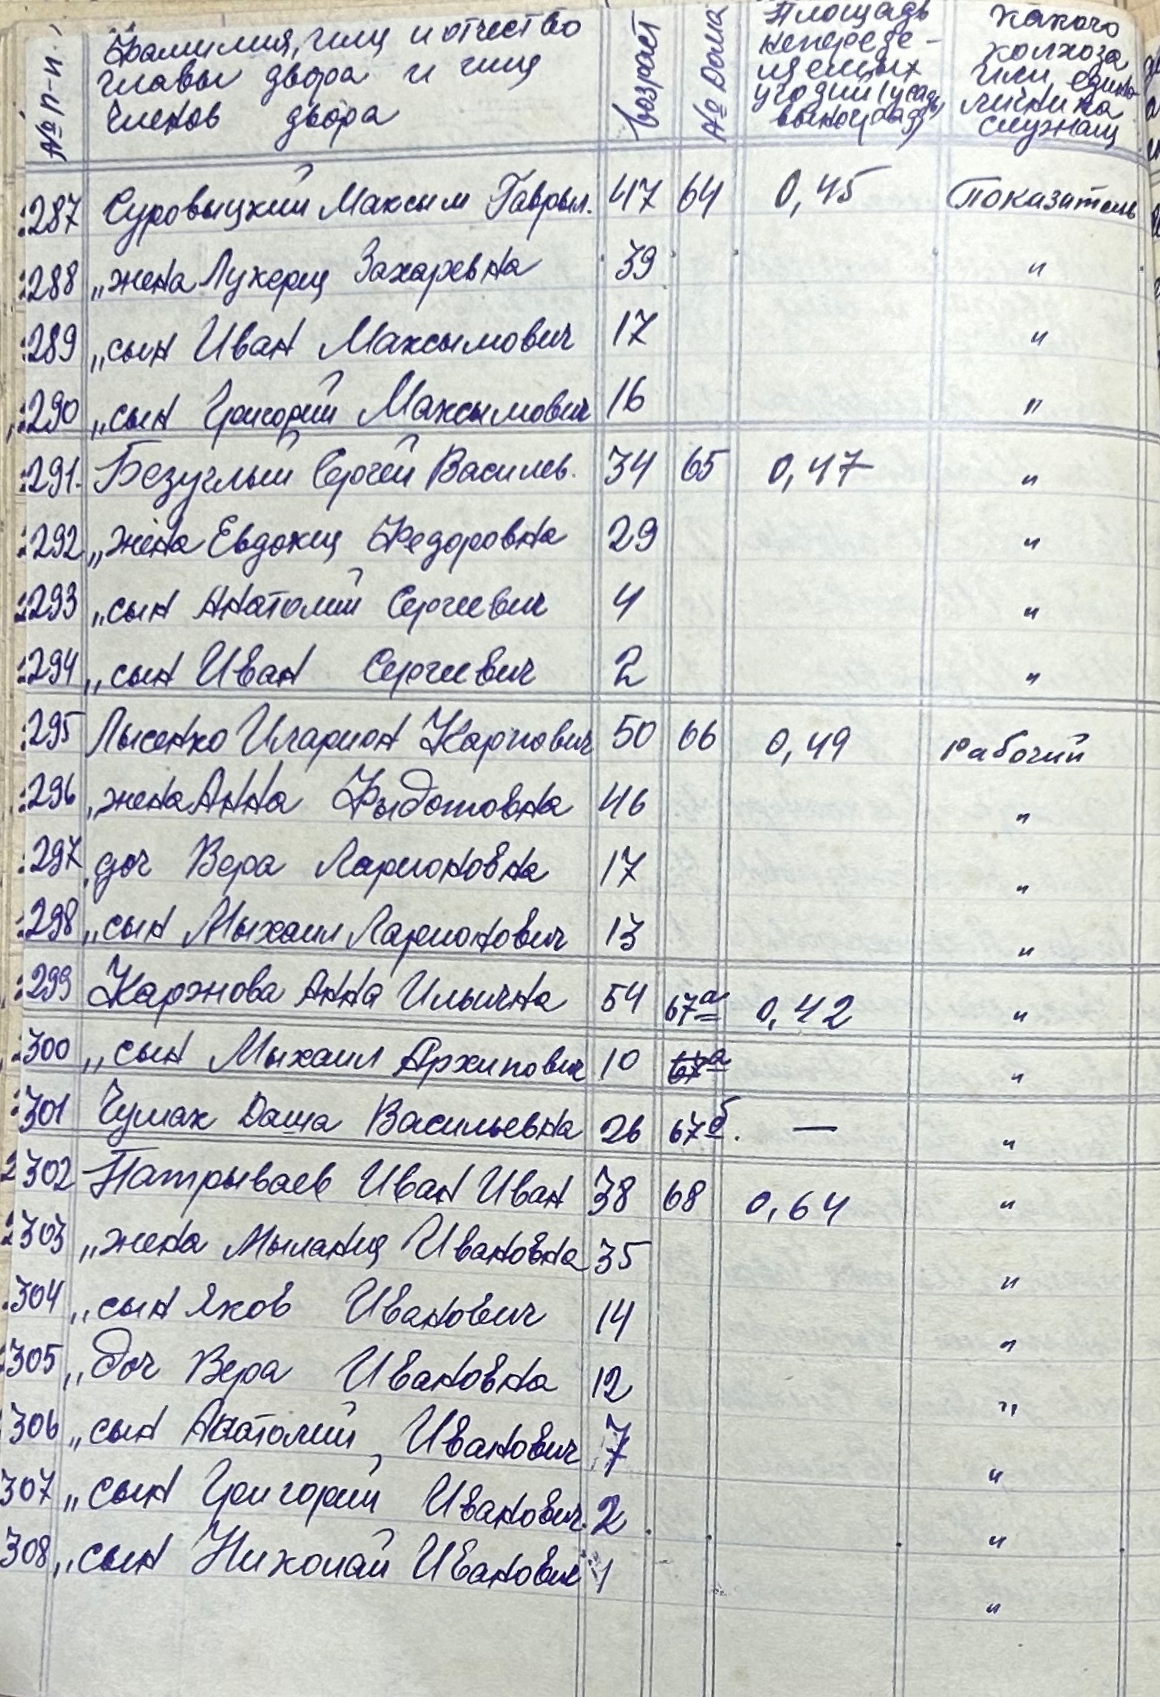 № п-п.
Фамилия, имя и отчество
главы двора и имя
членов двора
возраст
№ Дома
Площадь
непереде-
угодий (усадь
какого
колхоза
или едино
личника
служащ
:287 Суровыцкий Максым Гаврыл. 47 64 0,45 Показатель
:288 „жена Лукерия Захаревна 39 "
:289 „сын Иван Максымович 17 "
:290 „сын Григорий Максымович 16 "
:291. Безуглый Сергей Василев. 34 65 0,47 "
:292 „жена Евдокия Федоровна 29 "
:293 „сын Анатолий Сергеевич 4 "
:294 „сын Иван Сергеевич 2 "
:295 Лысенко Иларион Карпович 50 66 0,49 рабочий
:296 „жена Анна Фыдотовна 46 "
:297 „доч Вера Ларионовна 17 "
:298 „сын Мыхаил Ларионович 13 "
:299 Каржова Анна Ильична 54 67а 0,42 "
:300 „сын Мыхаил Архипович 10 67а "
:301 Чумак Даша Васильевна 26 67б. — "
2302 Патрываев Иван Иван 38 68 0,64 "
2303 „жена Мылания Ивановна 35 "
:304 „сын Яков Иванович 14 "
:305 „доч Вера Ивановна 12 "
306 „сын Анатолий Иванович 7 "
307 „сын Григорий Иванович. 2 "
308 „сын Николай Иванович 1 "